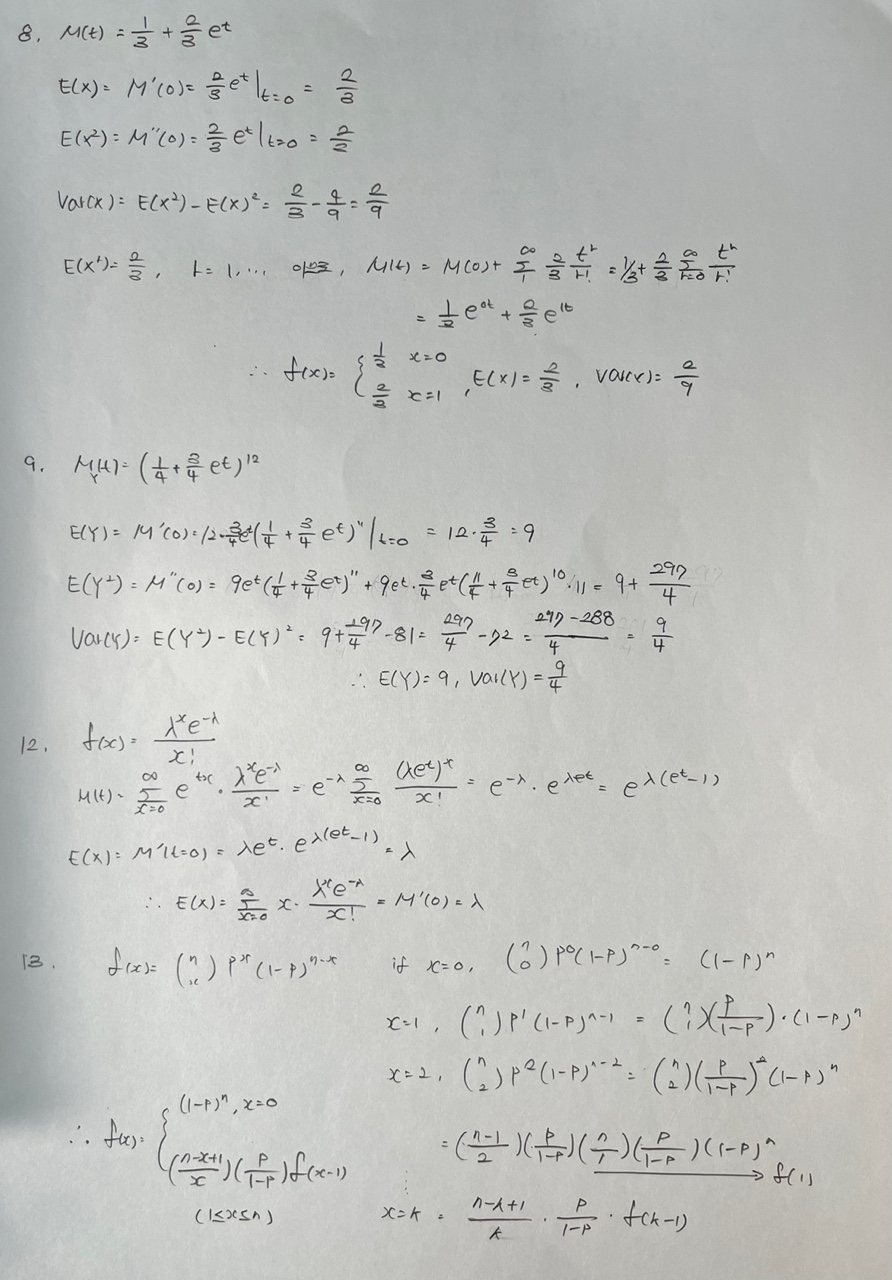 8. M(t) = 1/3 + 2/3 e^t
E(X) = M'(0) = 2/3 e^t |_{t=0} = 2/3
E(X²) = M''(0) = 2/3 e^t |_{t=0} = 2/3
Var(X) = E(X²) - E(X)² = 2/3 - 4/9 = 2/9
E(X^r) = 2/3, r = 1, ... 이므로, M(t) = M(0) + Σ_{1}^{∞} 2/3 t^r/r! = 1/3 + 2/3 Σ_{r=0}^{∞} t^r/r!
= 1/3 e^{0t} + 2/3 e^{1t}
∴ f(x) = { 1/3 x=0
2/3 x=1 , E(X) = 2/3, Var(X) = 2/9
9. M_Y(t) = (1/4 + 3/4 e^t)^{12}
E(Y) = M'(0) = 12·3/4 e^t (1/4 + 3/4 e^t)^{11} |_{t=0} = 12·3/4 = 9
E(Y²) = M''(0) = 9e^t (1/4 + 3/4 e^t)^{11} + 9e^t · 3/4 e^t (1/4 + 3/4 e^t)^{10} · 11 = 9 + 297/4
Var(Y) = E(Y²) - E(Y)² = 9 + 297/4 - 81 = 297/4 - 72 = (297-288)/4 = 9/4
∴ E(Y) = 9, Var(Y) = 9/4
12. f(x) = λ^x e^{-λ} / x!
M(t) = Σ_{x=0}^{∞} e^{tx} · λ^x e^{-λ} / x! = e^{-λ} Σ_{x=0}^{∞} (λe^t)^x / x! = e^{-λ} · e^{λe^t} = e^{λ(e^t-1)}
E(X) = M'(t=0) = λe^t · e^{λ(e^t-1)} = λ
∴ E(X) = Σ_{x=0}^{∞} x · λ^x e^{-λ} / x! = M'(0) = λ
13. f(x) = (n x) p^x (1-p)^{n-x} if x=0, (n 0) p^0 (1-p)^{n-0} = (1-p)^n
x=1, (n 1) p^1 (1-p)^{n-1} = (n 1)(p/(1-p)) · (1-p)^n
x=2, (n 2) p^2 (1-p)^{n-2} = (n 2)(p/(1-p))^2 (1-p)^n
= ((n-1)/2)(p/(1-p))(n/1)(p/(1-p))(1-p)^n
→ f(1)
⋮
x=k = (n-k+1)/k · p/(1-p) · f(k-1)
∴ f(x) = { (1-p)^n, x=0
((n-x+1)/x)(p/(1-p)) f(x-1)
(1≤x≤n)